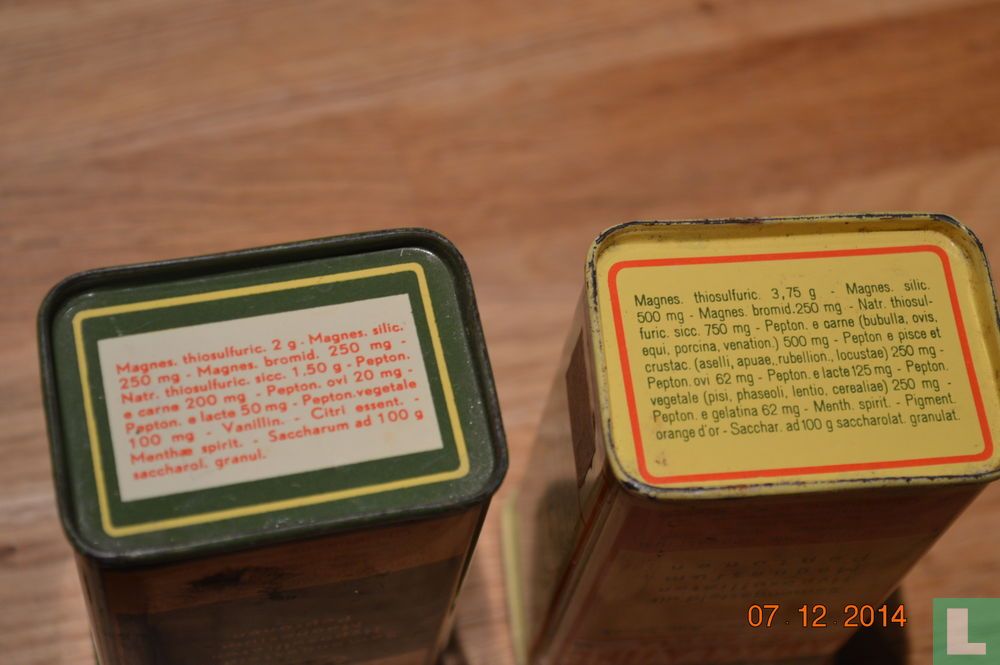 Magnes. thiosulfuric. 2 g - Magnes. silic.
250 mg - Magnes. bromid. 250 mg -
Natr. thiosulfuric. sicc. 1,50 g - Pepton.
e carne 200 mg - Pepton. ovi 20 mg -
Pepton. e lacte 50 mg - Pepton. vegetale
100 mg - Vanillin. - Citri essent. -
Menthæ spirit. - Saccharum ad 100 g
saccharol. granul.
Magnes. thiosulfuric. 3,75 g - Magnes. silic.
500 mg - Magnes. bromid. 250 mg - Natr. thiosul-
furic. sicc. 750 mg - Pepton. e carne (bubulla, ovis,
equi, porcina, venation.) 500 mg - Pepton e pisce et
crustac. (aselli, apuae, rubellion., locustae) 250 mg -
Pepton. ovi 62 mg - Pepton. e lacte 125 mg - Pepton.
vegetale (pisi, phaseoli, lentio, cerealiae) 250 mg -
Pepton. e gelatina 62 mg - Menth. spirit. - Pigment.
orange d'or - Sacchar. ad 100 g saccharolat. granulat.
07.12.2014
L